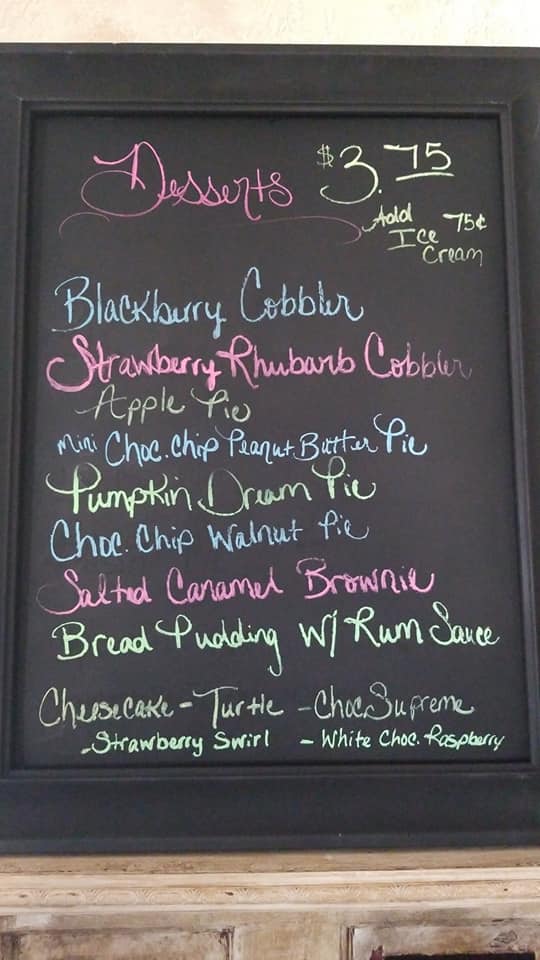 Desserts $3.75
Add 75¢
Ice
Cream
Blackberry Cobbler
Strawberry Rhubarb Cobbler
Apple Pie
mini Choc. Chip Peanut Butter Pie
Pumpkin Dream Pie
Choc. Chip Walnut Pie
Salted Caramel Brownie
Bread Pudding W/ Rum Sauce
Cheesecake - Turtle - Choc Supreme
- Strawberry Swirl - White Choc. Raspberry